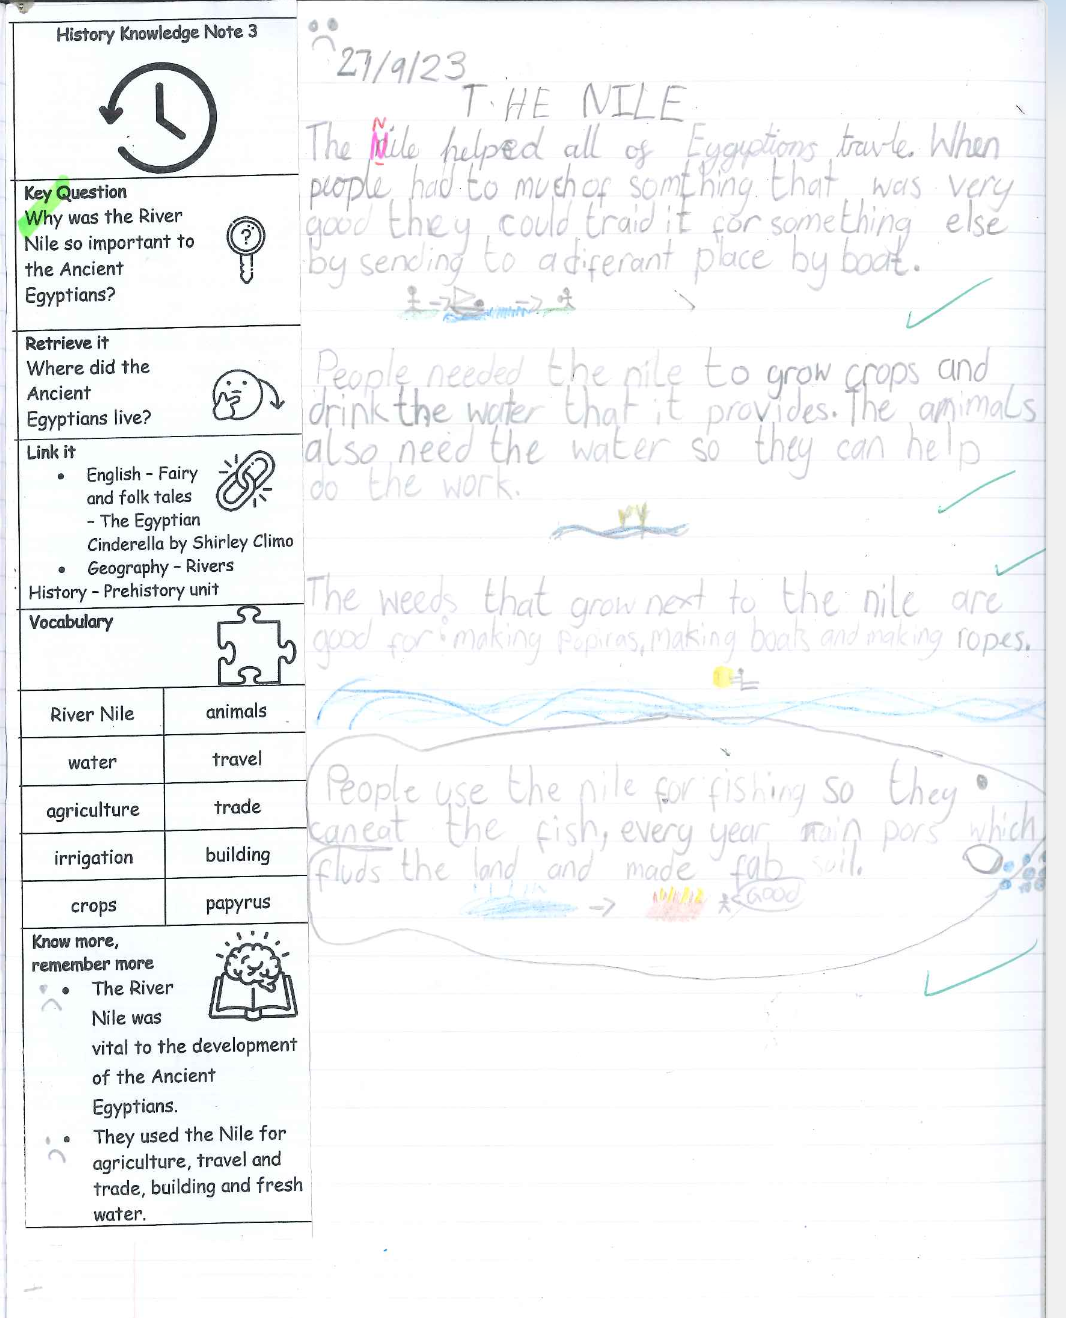 History Knowledge Note 3
Key Question
Why was the River
Nile so important to
the Ancient
Egyptians?
?
Retrieve it
Where did the
Ancient
Egyptians live?
Link it
• English – Fairy
and folk tales
– The Egyptian
Cinderella by Shirley Climo
• Geography – Rivers
History – Prehistory unit
Vocabulary
River Nile animals
water travel
agriculture trade
irrigation building
crops papyrus
Know more,
remember more
• The River
Nile was
vital to the development
of the Ancient
Egyptians.
• They used the Nile for
agriculture, travel and
trade, building and fresh
water.
27/9/23
THE NILE
N
The Nile helped all of Egyguptions travle. When
people had to much of somthing that was very
good they could traid it for something else
by sending to a diferant place by boat.
People needed the nile to grow crops and
drink the water that it provides. The amimals
also need the water so they can help
do the work.
The weeds that grow next to the nile are
good for: making popiras, making boats and making ropes.
People use the nile for fishing so they
can eat the fish, every year rain pors which
fluds the land and made fab soil.
GOOD